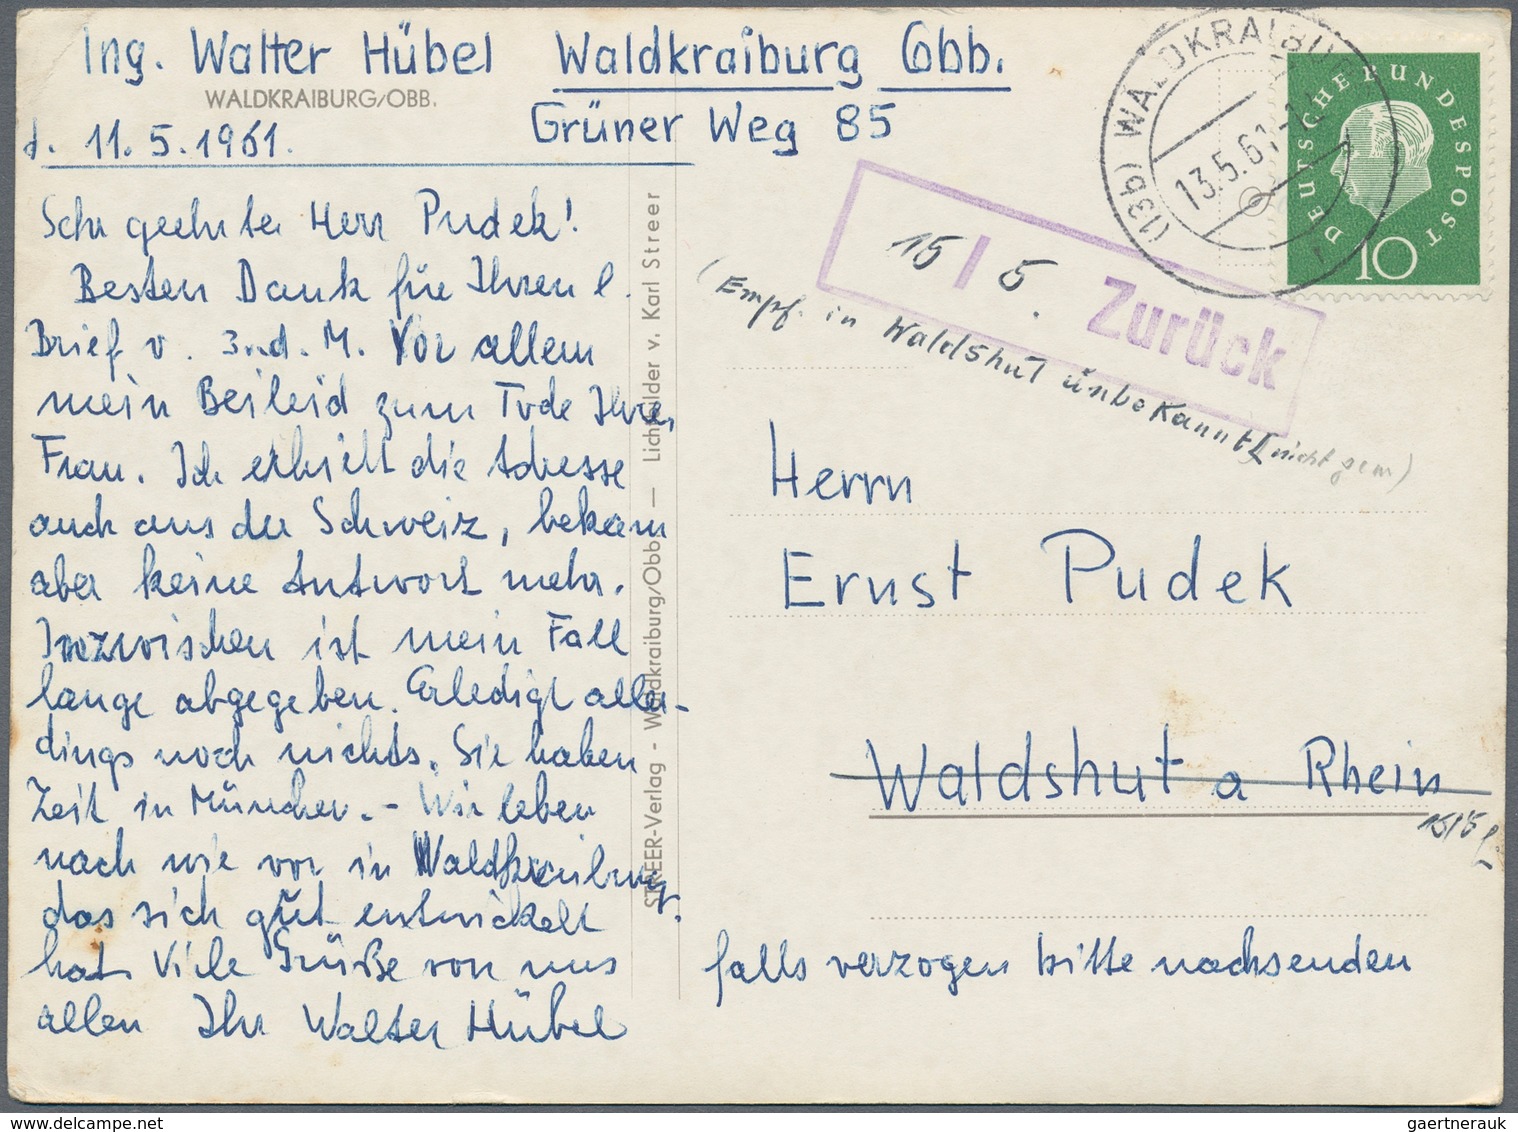 Ing. Walter Hübel Waldkraiburg Obb.
WALDKRAIBURG/OBB.
Grüner Weg 85
d. 11.5.1961.
Sehr geehrter Herr Pudek!
Besten Dank für Ihren l.
Brief v. 3. d. M. Vor allem
mein Beileid zum Tode Ihrer
Frau. Ich erhielt die Adresse
auch aus der Schweiz, bekam
aber keine Antwort mehr.
Inzwischen ist mein Fall
lange abgegeben. Erledigt aller-
dings noch nichts. Sie haben
Zeit in München. - Wir leben
nach wie vor in Waldkraiburg,
das sich gut entwickelt
hat. Viele Grüße von uns
allen Ihr Walter Hübel
STREER-Verlag - Waldkraiburg/Obb. — Lichtbilder v. Karl Streer
(13b) WALDKRAIBURG
13.5.61
DEUTSCHE BUNDESPOST
10
15/5.
Zurück
(Empf. in Waldshut unbekannt
Herrn
Ernst Pudek
Waldshut a Rhein
15/5
falls verzogen bitte nachsenden
www.delcampe.net
gaertnerauk